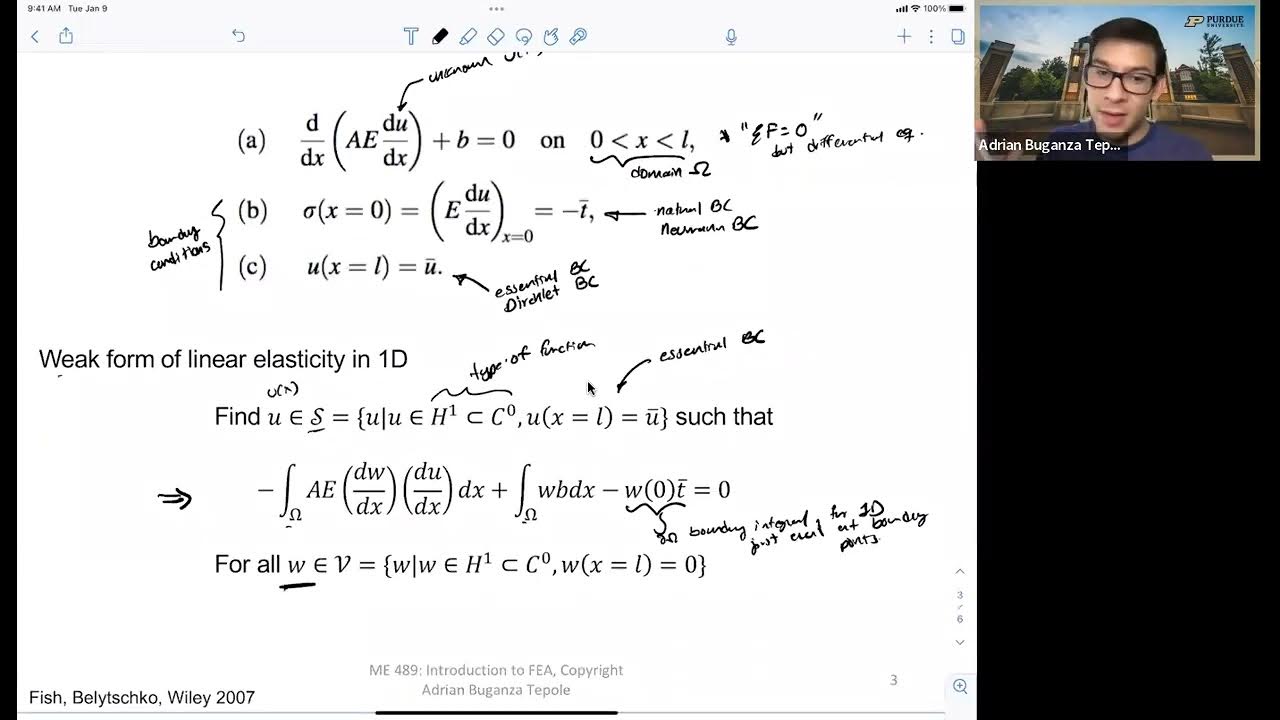 9:41 AM Tue Jan 9
100%
PURDUE UNIVERSITY
Adrian Buganza Tep...
unknown
(a) d/dx (AE du/dx) + b = 0 on 0 < x < l,
"ΣF=0"
but differential eq.
domain Ω
(b) σ(x = 0) = (E du/dx)_{x=0} = −t̄,
natural BC
Neumann BC
boundary
conditions
(c) u(x = l) = ū.
essential BC
Dirchlet BC
Weak form of linear elasticity in 1D
type of function
essential BC
u(x)
Find u ∈ 𝒮 = {u|u ∈ H¹ ⊂ C⁰, u(x = l) = ū} such that
⇒ −∫_Ω AE (dw/dx) (du/dx) dx + ∫_Ω wbdx − w(0)t̄ = 0
∂Ω boundary integral for 1D
just eval at boundary
points
For all w ∈ 𝒱 = {w|w ∈ H¹ ⊂ C⁰, w(x = l) = 0}
3
/
6
ME 489: Introduction to FEA, Copyright
Adrian Buganza Tepole
3
Fish, Belytschko, Wiley 2007